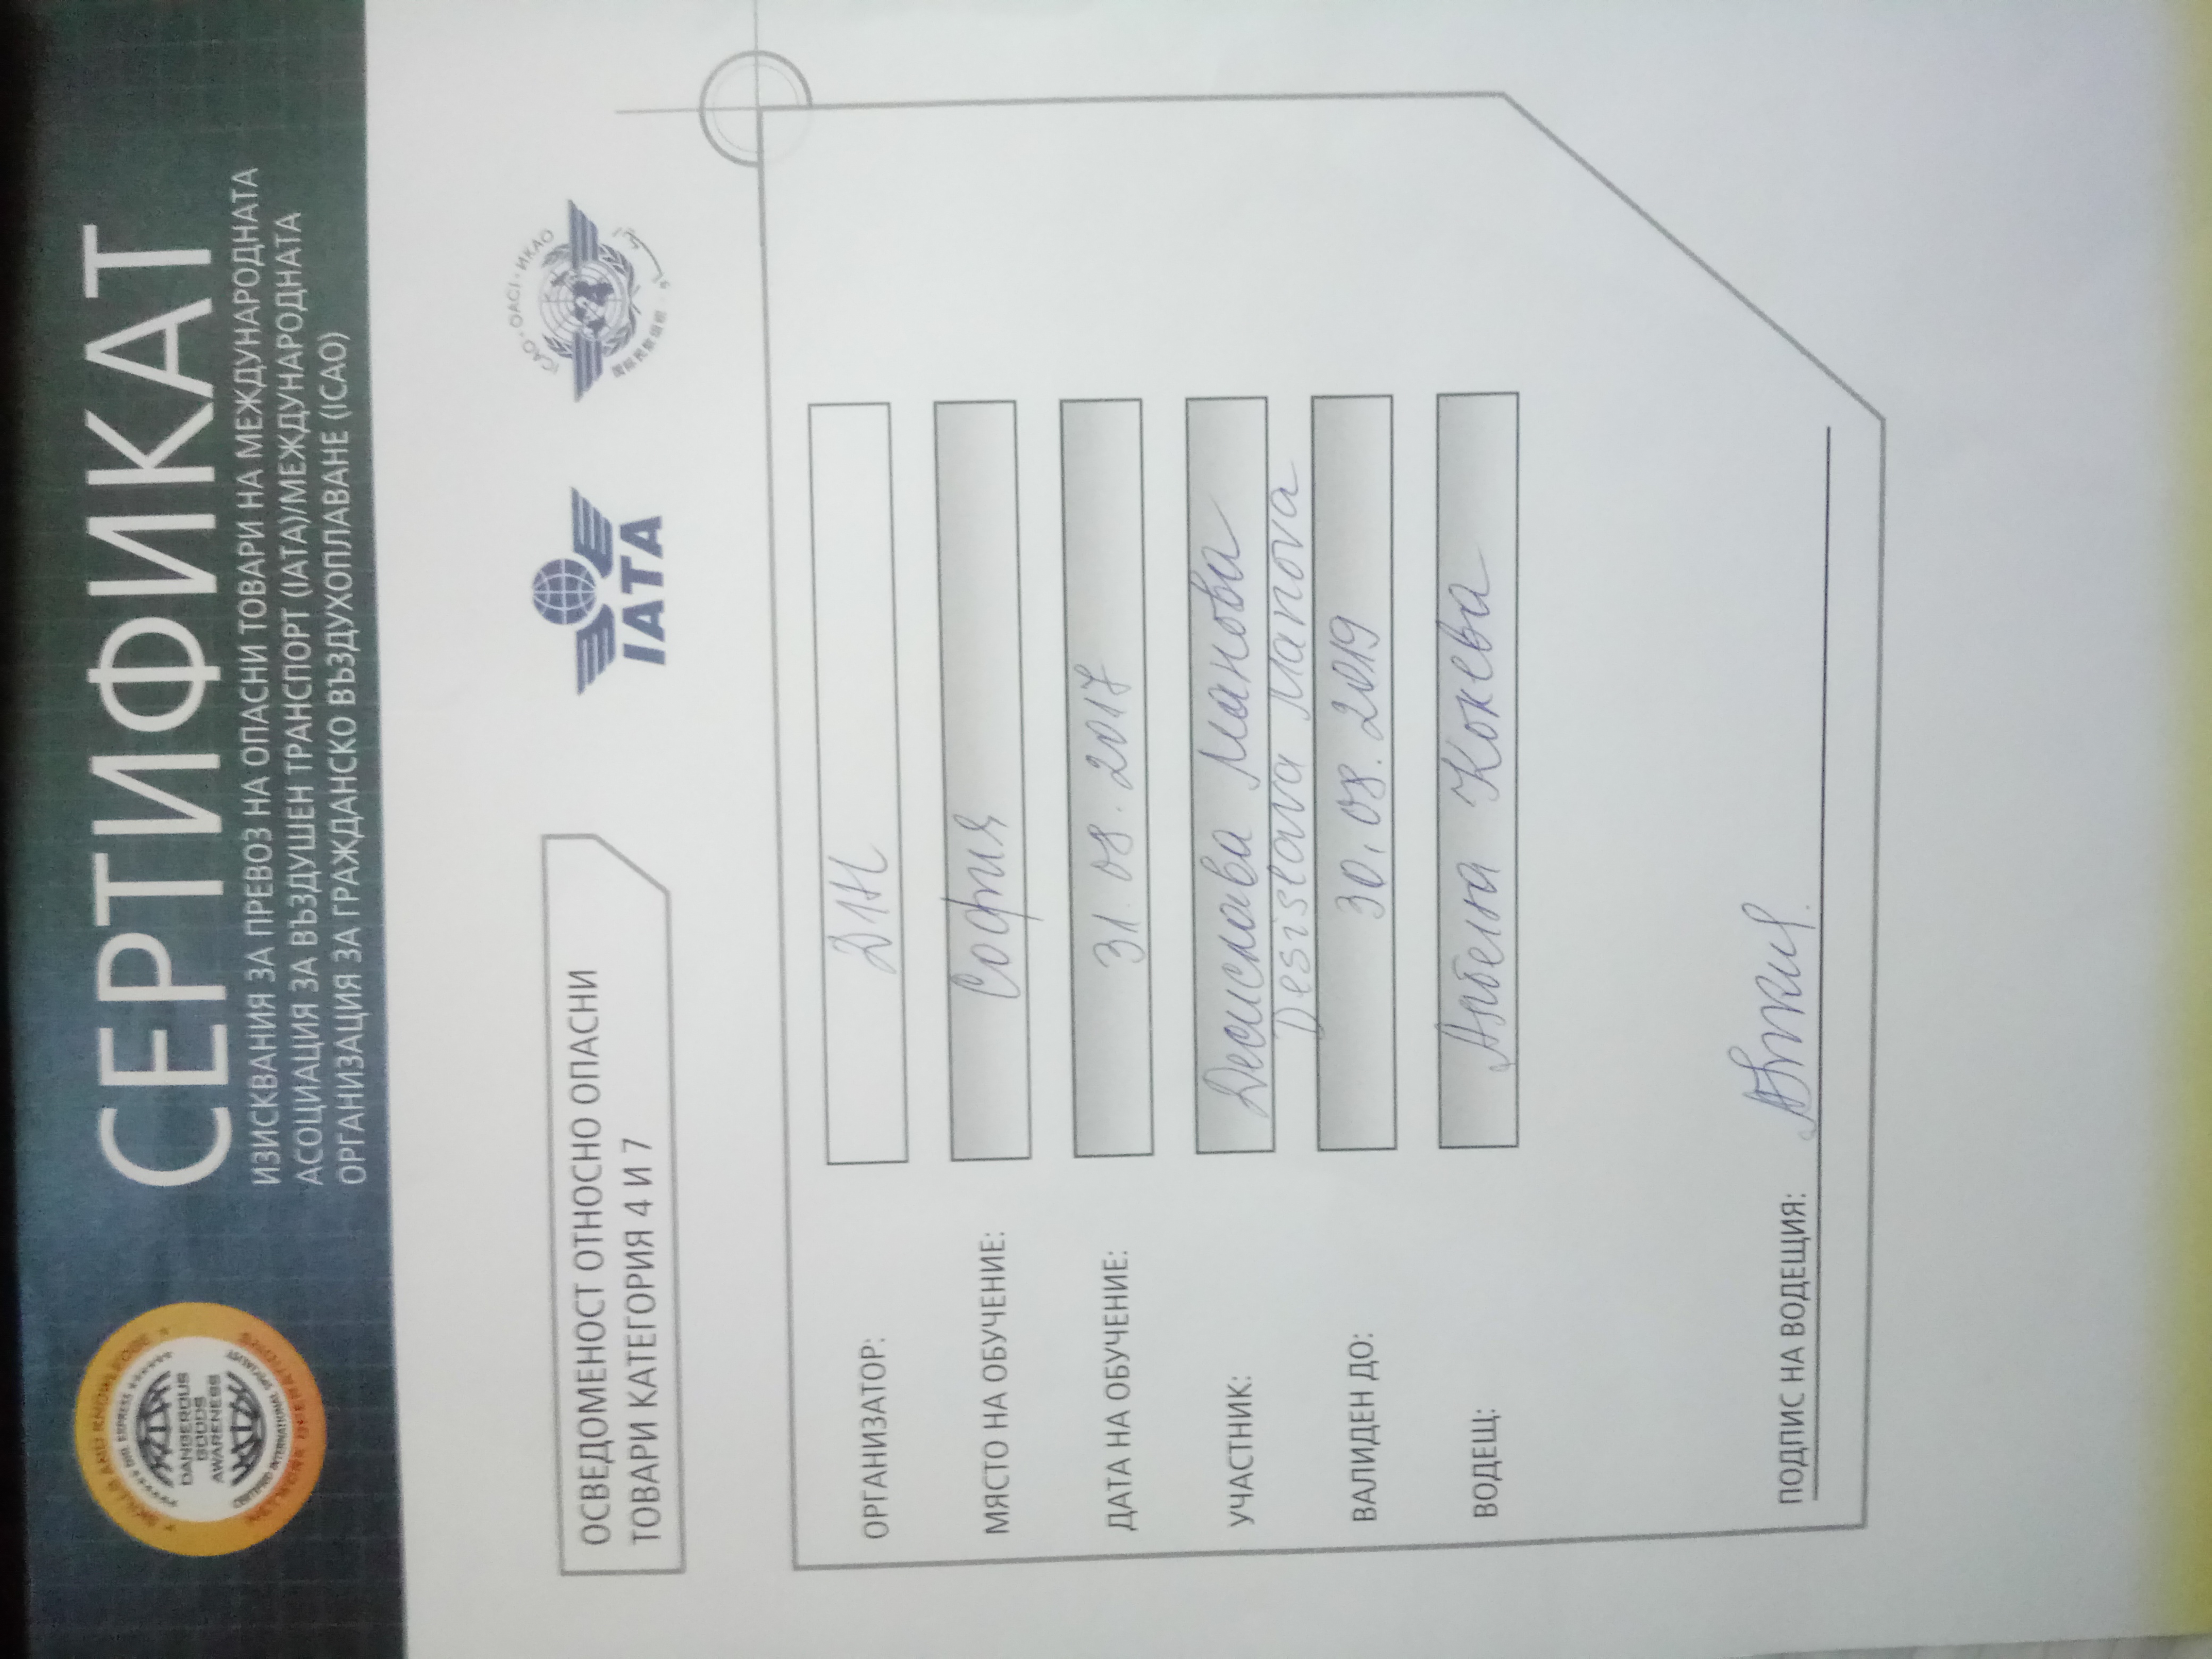 SKILLS AND KNOWLEDGE
DHL EXPRESS
DANGEROUS
GOODS
AWARENESS
CERTIFIED INTERNATIONAL SPECIALIST
NETWORK OPERATIONS
СЕРТИФИКАТ
ИЗИСКВАНИЯ ЗА ПРЕВОЗ НА ОПАСНИ ТОВАРИ НА МЕЖДУНАРОДНАТА
АСОЦИАЦИЯ ЗА ВЪЗДУШЕН ТРАНСПОРТ (IATA)/МЕЖДУНАРОДНАТА
ОРГАНИЗАЦИЯ ЗА ГРАЖДАНСКО ВЪЗДУХОПЛАВАНЕ (ICAO)
ОСВЕДОМЕНОСТ ОТНОСНО ОПАСНИ
ТОВАРИ КАТЕГОРИЯ 4 И 7
IATA
ICAO · OACI · ИКАО
ОРГАНИЗАТОР:
МЯСТО НА ОБУЧЕНИЕ: София
ДАТА НА ОБУЧЕНИЕ: 31.08.2017
УЧАСТНИК: Десислава Манова
Desislava Manova
ВАЛИДЕН ДО: 30.08.2019
ВОДЕЩ: Албена Кокева
ПОДПИС НА ВОДЕЩИЯ: